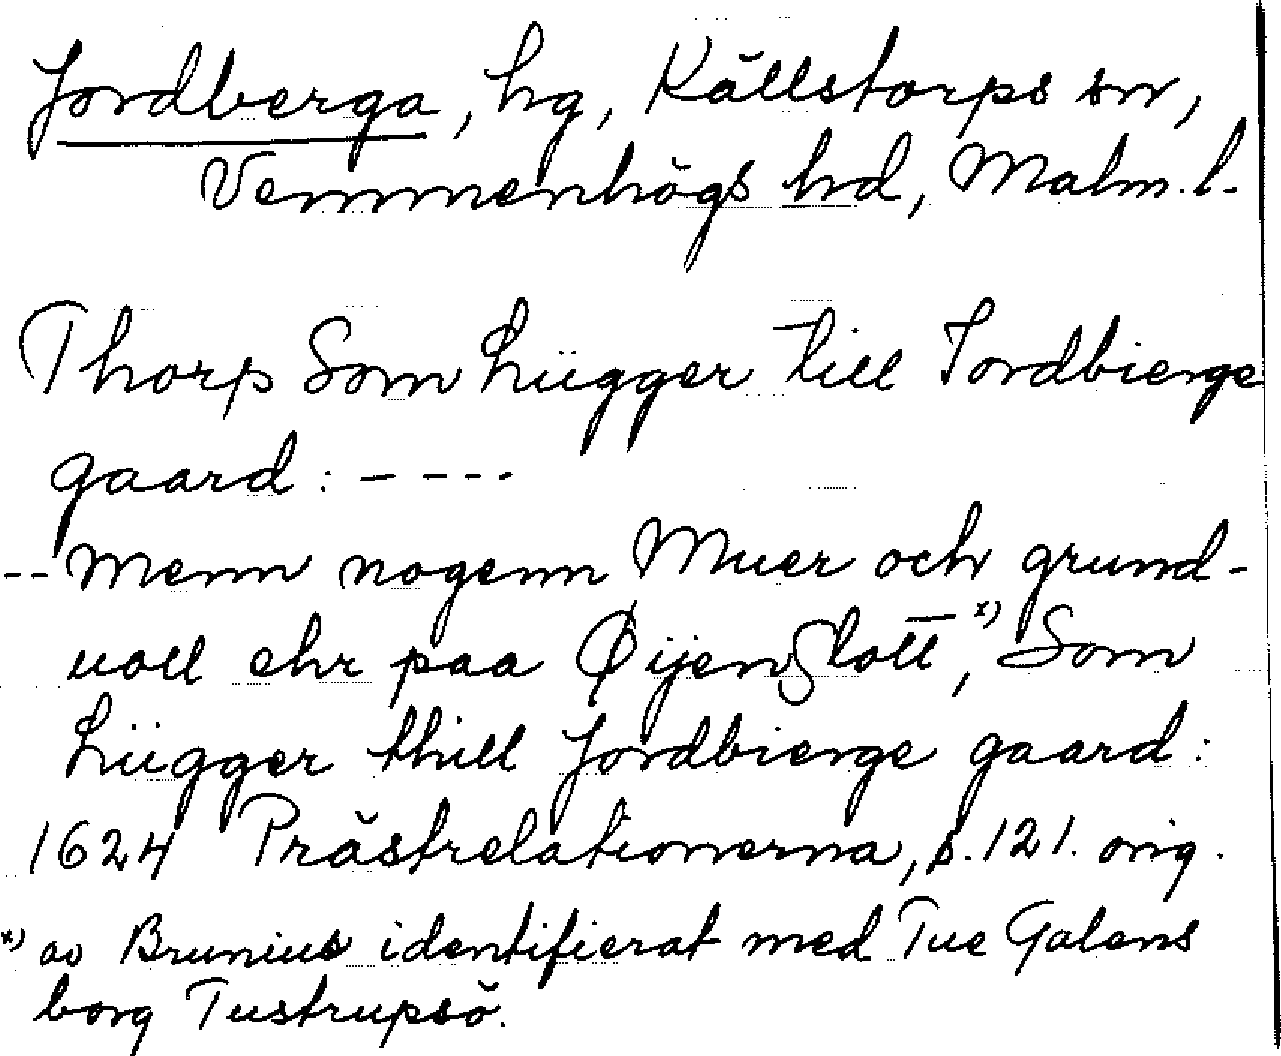 Jordberga, hg, Källstorps sn,
Vemmenhögs hd, Malm. l.
Thorp Som Liigger till Jordbierge
gaard: - - - -
-- Menn nogenn Muer och grund-
uoll ehr paa Øijenslott,x) Som
Liigger thill Jordbierge gaard:
1624 Prästrelationerna, s. 121. orig.
x) av Brunius identifierat med Tue Galens
borg Tustrupsö.